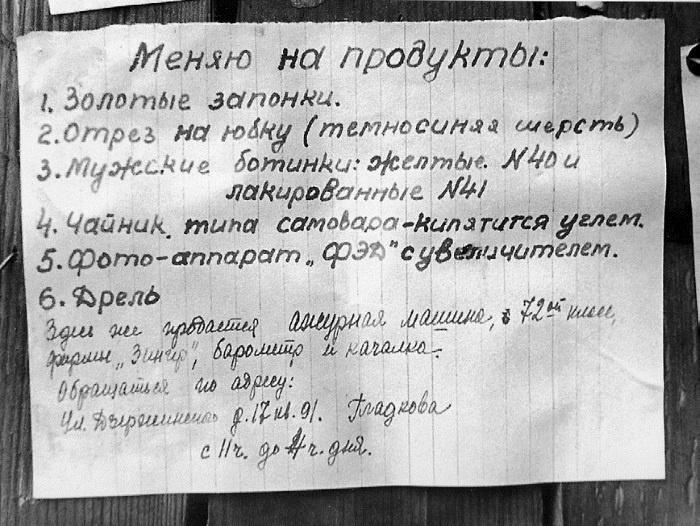 Меняю на продукты:
1. Золотые запонки.
2. Отрез на юбку (темносиняя шерсть)
3. Мужские ботинки: желтые N40 и
лакированные N41
4. Чайник типа самовара-кипятится углем.
5. Фото-аппарат „ФЭД" с увеличителем.
6. Дрель
Здесь же продается ажурная машина, 72ой класс,
фирмы „Зингер", барометр и качалка.
Обращаться по адресу:
Ул. Дзержинского д.17 кв. 91. Гладкова
с 11 ч. до 4 ч. дня.